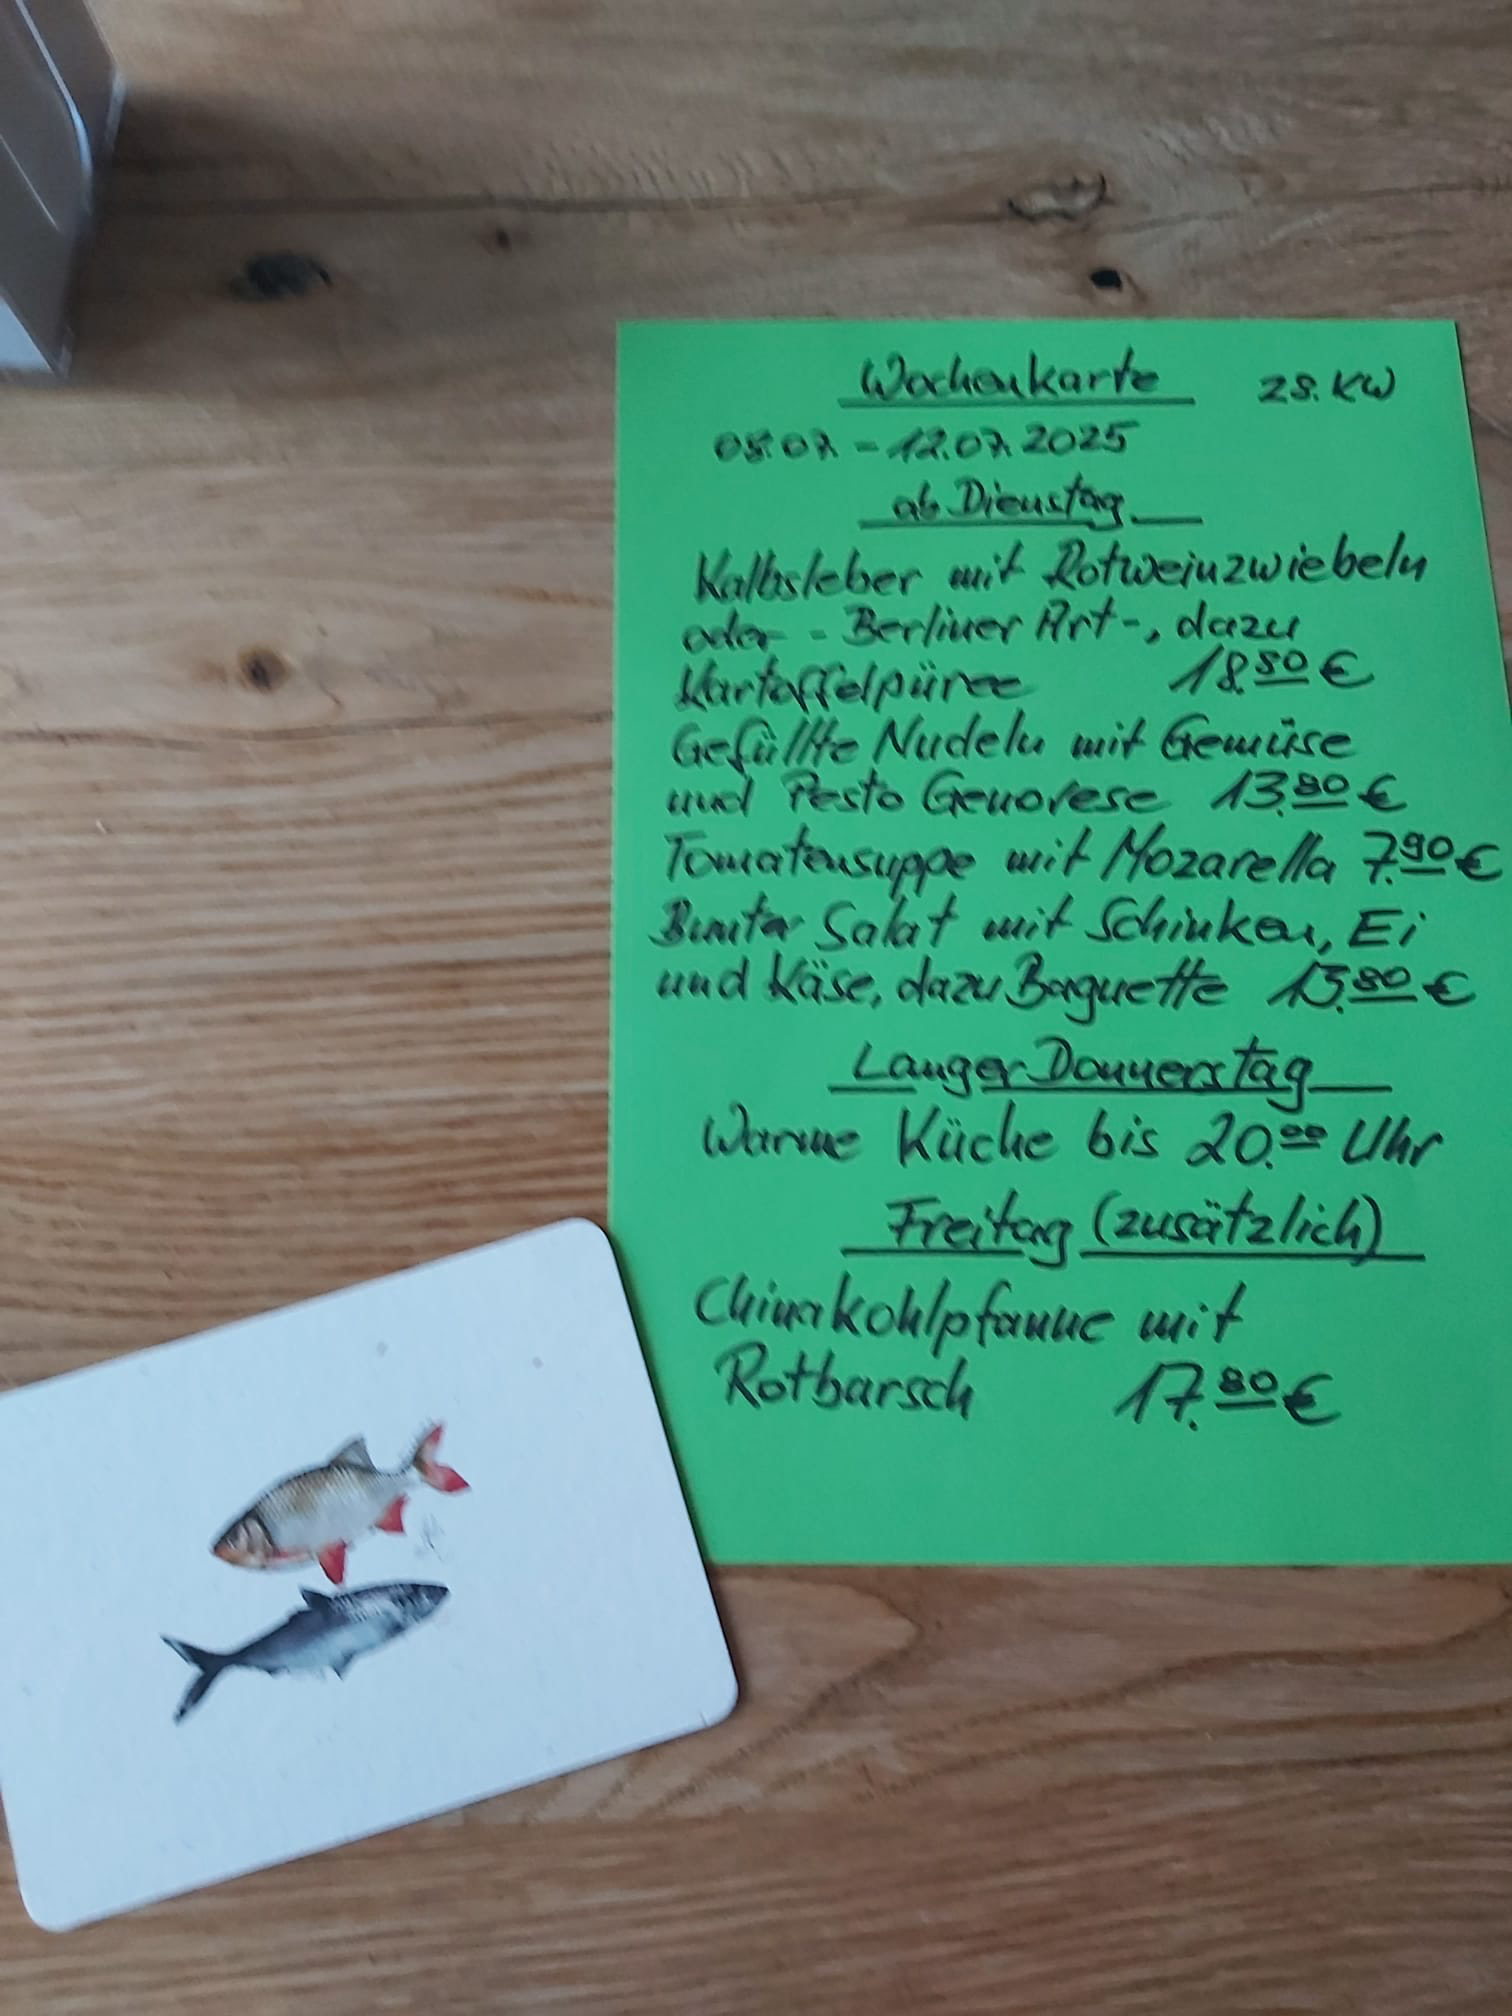 Wochenkarte 28. KW
08.07. - 12.07.2025
ab Dienstag
Kalbsleber mit Rotweinzwiebeln
oder - Berliner Art-, dazu
Kartoffelpüree 18.50 €
Gefüllte Nudeln mit Gemüse
und Pesto Genovese 13.80 €
Tomatensuppe mit Mozarella 7.90 €
Bunter Salat mit Schinken, Ei
und Käse, dazu Baguette 13.80 €
Langer Donnerstag
Warme Küche bis 20.00 Uhr
Freitag (zusätzlich)
Chinakohlpfanne mit
Rotbarsch 17.80 €